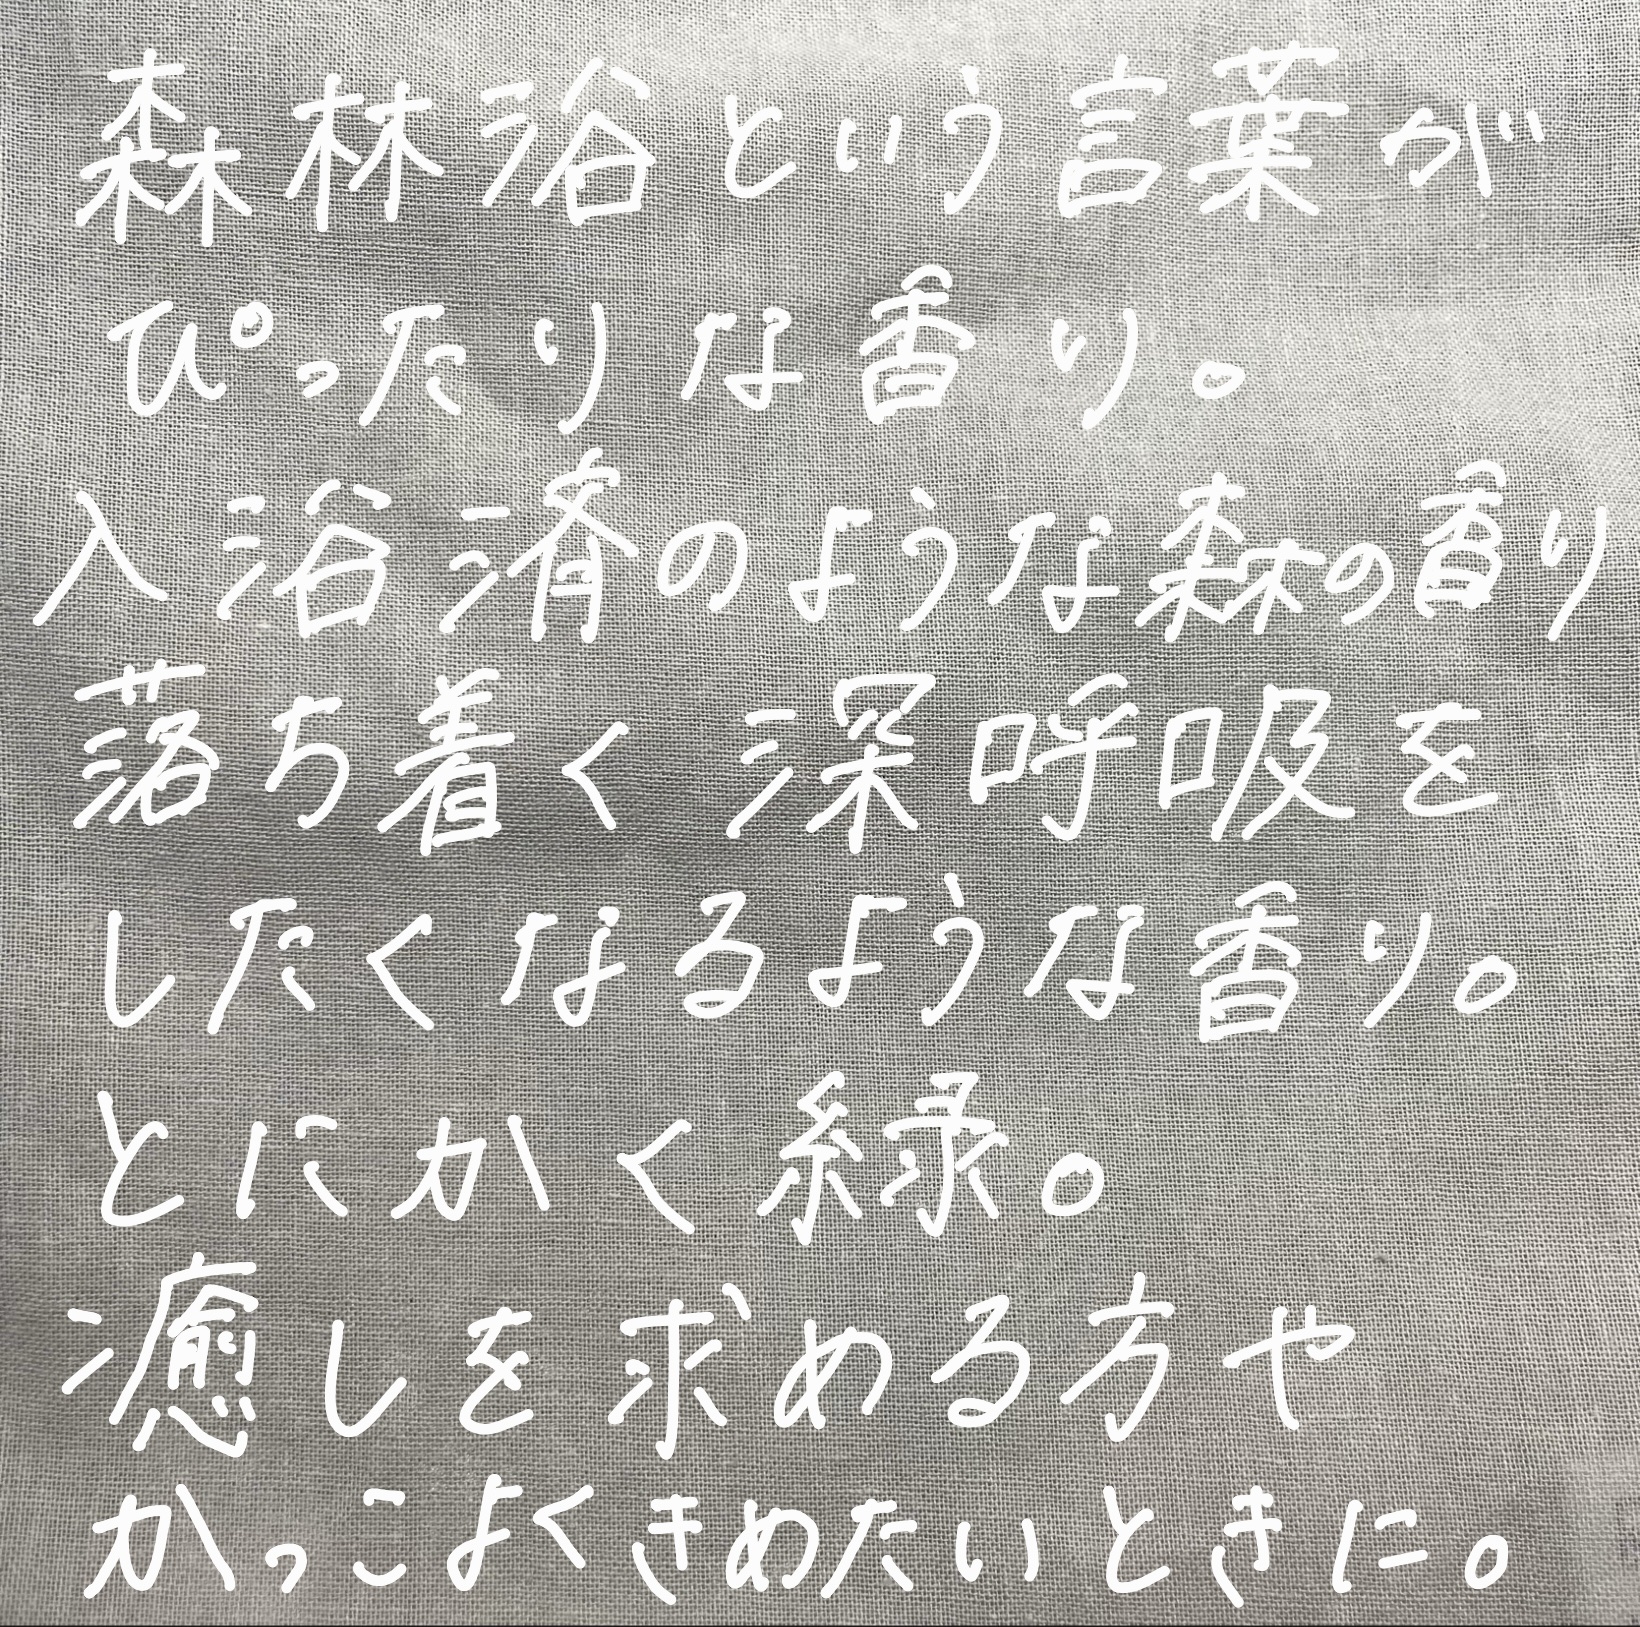 森林浴という言葉が
ぴったりな香り。
入浴済のような森の香り
落ち着く深呼吸を
したくなるような香り。
とにかく緑。
癒しを求める方や
かっこよくきめたいときに。